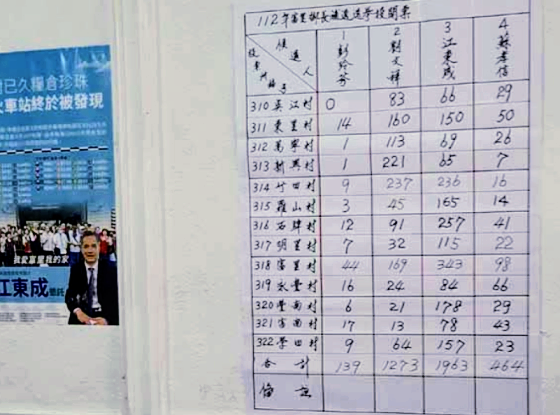 已久糧倉珍珠
火車站終於被發現
我愛富里我的家
江東成
112年富里鄉長補選選舉投開票
候選人
投票所編號
1 彭玲芬 2 劉文禎 3 江東成 4 蘇孝信
310 吳江村 0 83 66 29
311 東里村 14 160 150 50
312 萬寧村 1 113 69 26
313 新興村 1 221 65 7
314 竹田村 9 237 236 16
315 羅山村 3 45 165 14
316 石牌村 12 91 257 41
317 明里村 7 32 115 22
318 富里村 44 169 343 98
319 永豐村 16 24 84 66
320 豐南村 6 21 178 29
321 富南村 17 13 78 43
322 學田村 9 64 157 23
合計 139 1273 1963 464
備註